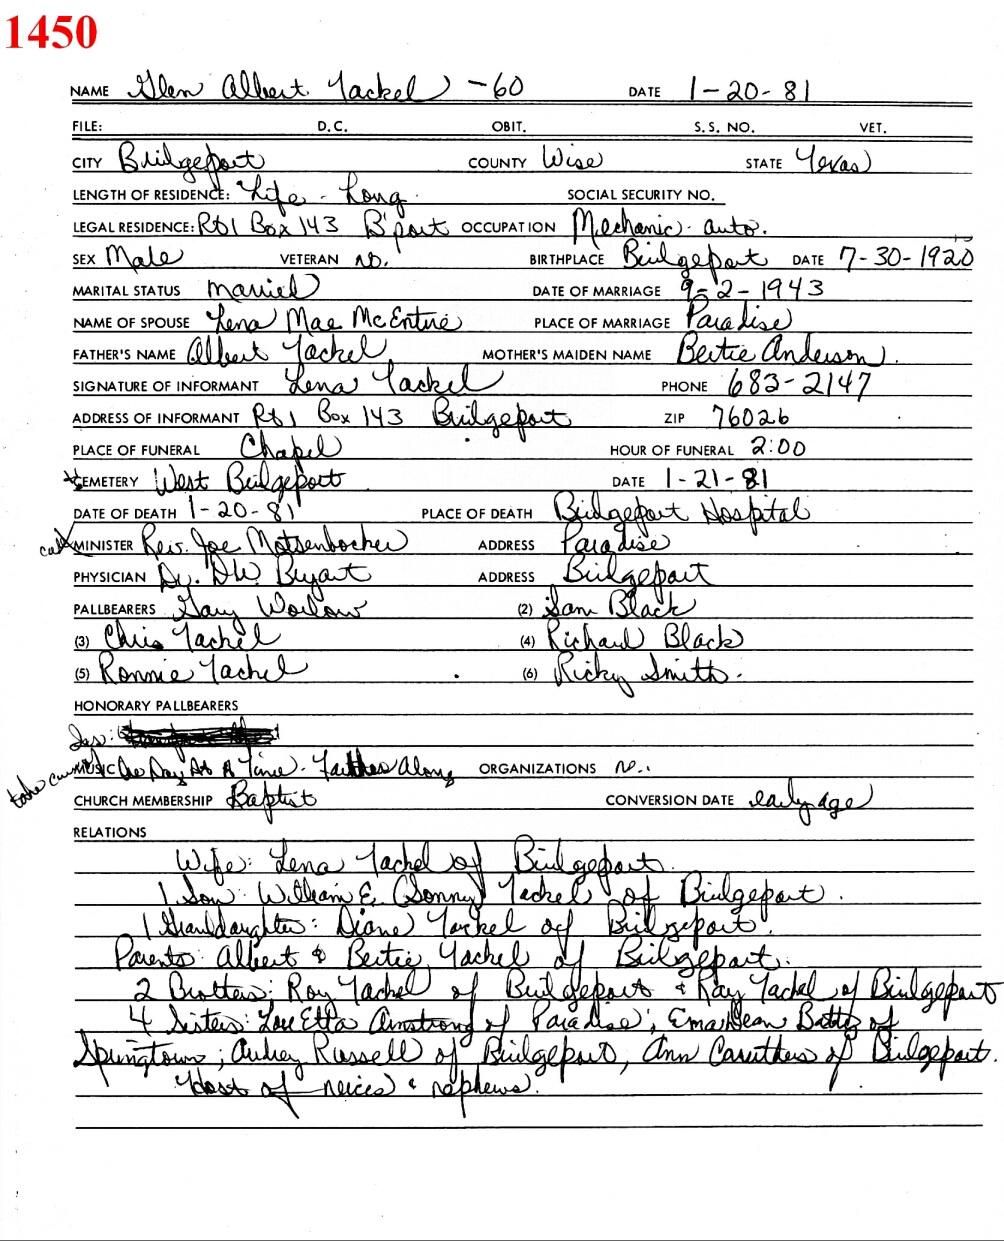 1450
NAME Glen Albert Tackel - 60 DATE 1-20-81
FILE: D.C. OBIT. S.S. NO. VET.
CITY Bridgeport COUNTY Wise STATE Texas
LENGTH OF RESIDENCE: Life-Long SOCIAL SECURITY NO.
LEGAL RESIDENCE: Rt 1 Box 143 B'port OCCUPATION Mechanic - auto.
SEX Male VETERAN no. BIRTHPLACE Bridgeport DATE 7-30-1920
MARITAL STATUS married DATE OF MARRIAGE 9-2-1943
NAME OF SPOUSE Lena Mae McEntire PLACE OF MARRIAGE Paradise
FATHER'S NAME Albert Tackel MOTHER'S MAIDEN NAME Bertie Anderson
SIGNATURE OF INFORMANT Lena Tackel PHONE 683-2147
ADDRESS OF INFORMANT Rt 1 Box 143 Bridgeport ZIP 76026
PLACE OF FUNERAL Chapel HOUR OF FUNERAL 2:00
CEMETERY West Bridgeport DATE 1-21-81
DATE OF DEATH 1-20-81 PLACE OF DEATH Bridgeport Hospital
call MINISTER Rev. Joe Motsenbocker ADDRESS Paradise
PHYSICIAN Dr. DW. Bryant ADDRESS Bridgeport
PALLBEARERS Gary (2) Sam Black
(3) Chris Tackel (4) Richard Black
(5) Ronnie Tackel (6) Ricky Smith.
HONORARY PALLBEARERS
MUSIC One Day At A Time - Farther Along ORGANIZATIONS no.
take
CHURCH MEMBERSHIP Baptist CONVERSION DATE early age
RELATIONS
Wife: Lena Tackel of Bridgeport.
1 Son: William E. (Sonny) Tackel of Bridgeport.
1 Granddaughter: Diane Tackel of Bridgeport.
Parents: Albert & Bertie Tackel of Bridgeport.
2 Brothers; Roy Tackel of Bridgeport & Ray Tackel of Bridgeport
4 Sisters: Lou Etta Armstrong of Paradise; Ema Jean of
Springtown; Audrey Russell of Bridgeport, Ann Caruthers of Bridgeport.
Host of neices & nephews.